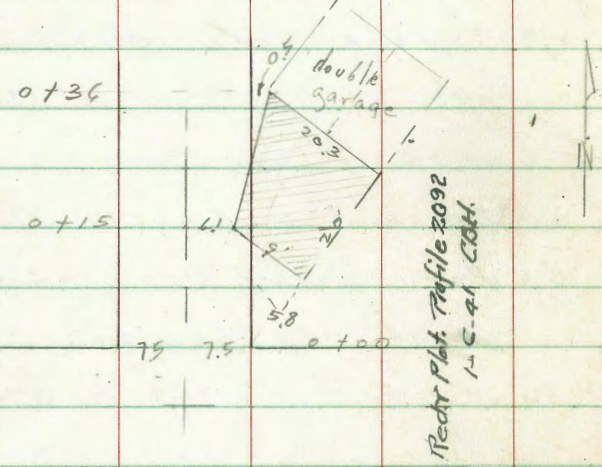 0.4
double
garage
0+36
20.3
0+15
1.1
20
5.8
7.5 7.5 0+00
N
Redr Plat. Profile 2092
1-6-41 CBH.